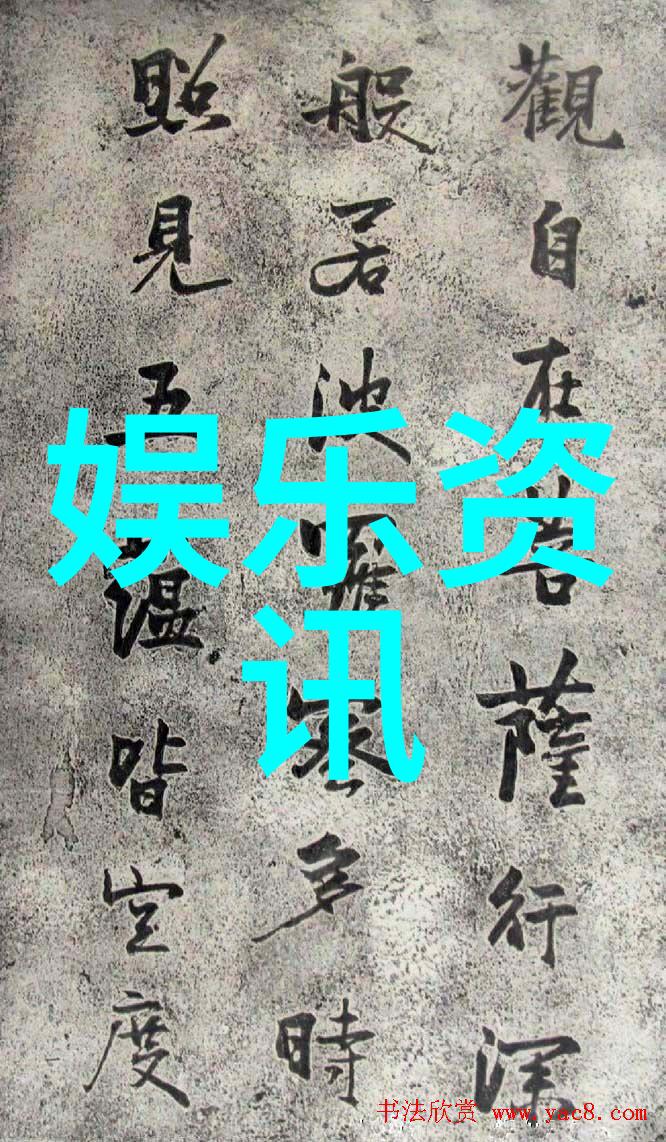 觀自在菩薩行深
般若波羅蜜多時
照見五蕰皆空度
娱乐资
讯
书法欣赏 www.yac8.com